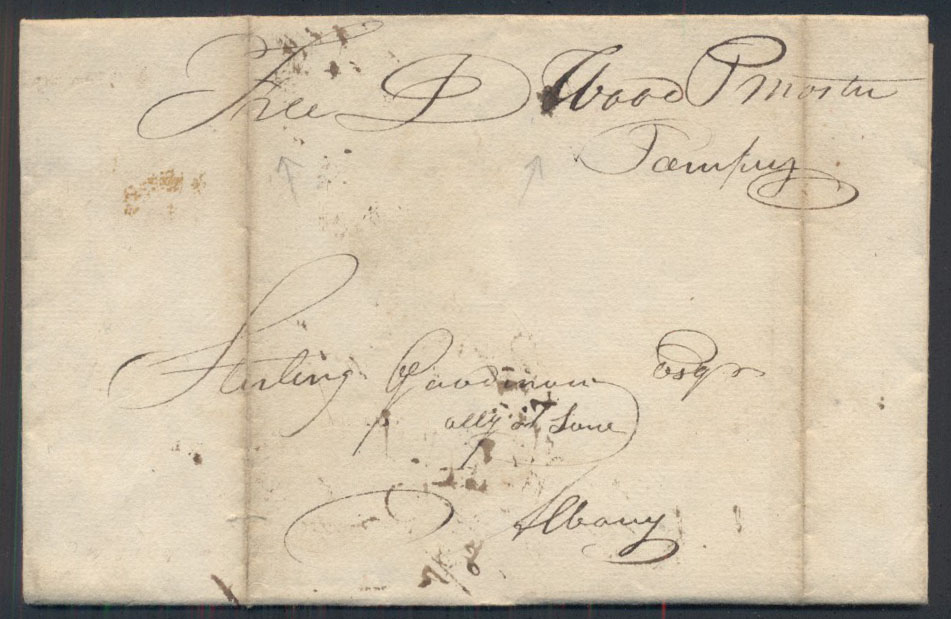 Free D Wood P Master
Pompey
Sterling Goodenow Esqr
atty at Law
Albany